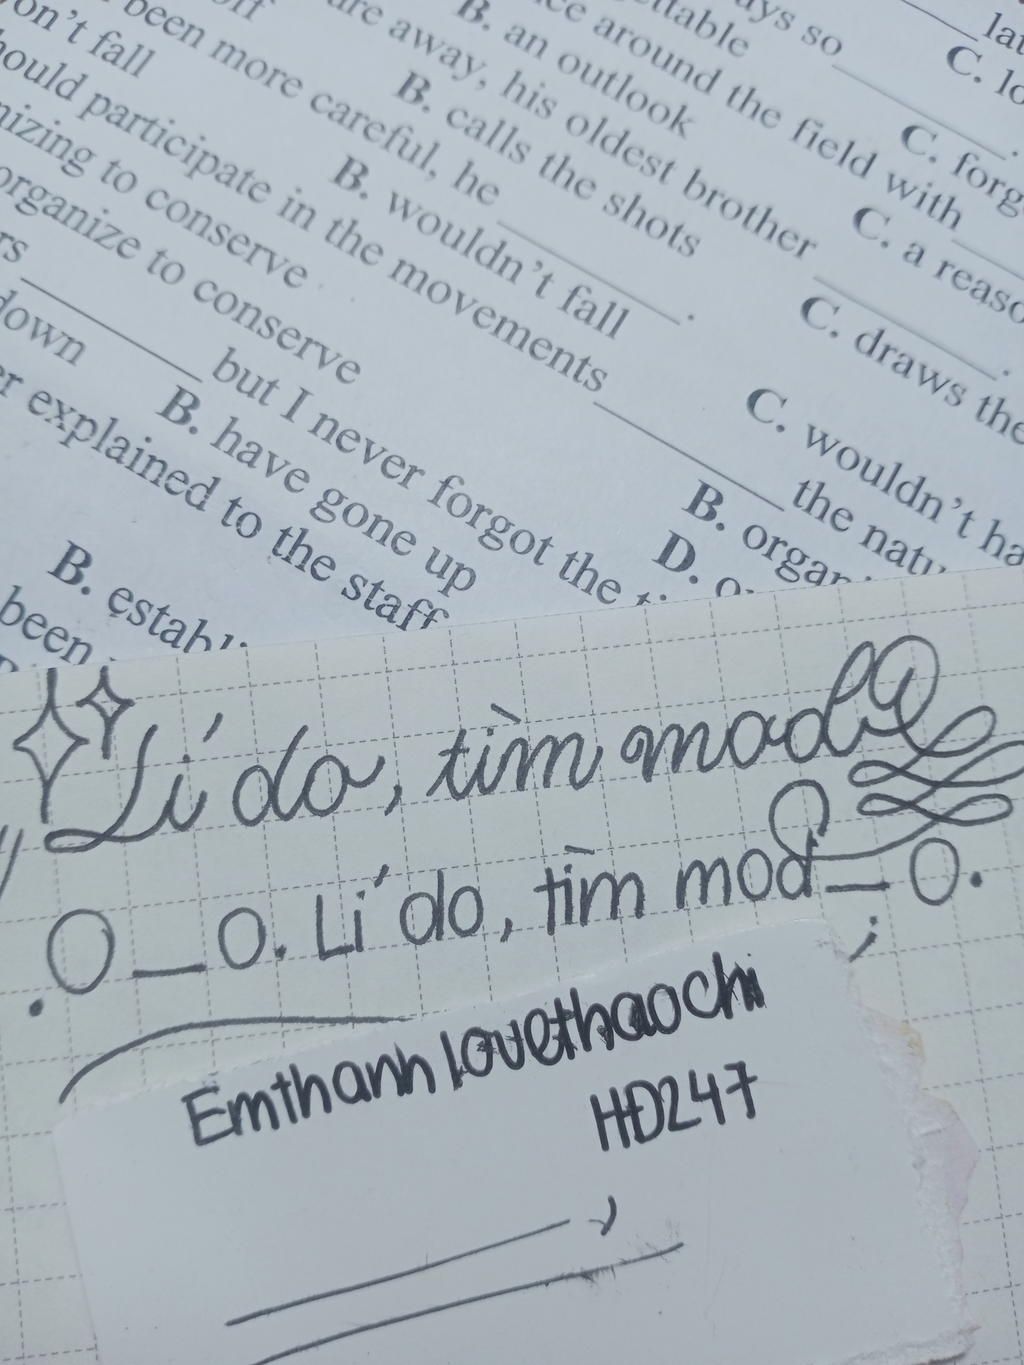 lat
ays so ______.
C. lo
ettable
C. forg
ce around the field with
B. an outlook
C. a reaso
are away, his oldest brother ______.
B. calls the shots
C. draws the
been more careful, he ______.
on't fall
B. wouldn't fall
C. wouldn't ha
hould participate in the movements ______ the natu
nizing to conserve
B. organ
organize to conserve
D. o
rs ______ but I never forgot the ti
down
B. have gone up
er explained to the staff
B. establi
been
Lí do, tìm mode
.O_O. Lí do, tìm mod_O.
Emthanh lovethaochi
HĐ247